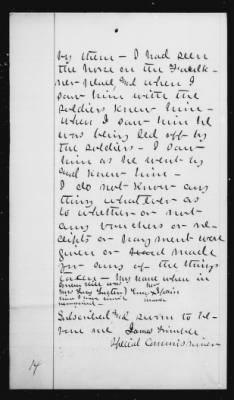 by them - I had seen
the horse on the Faulk-
ner place, and when I
saw him with the
soldiers knew him -
when I saw him he
was being led off by
the soldiers - I saw
him as he went by
and knew him -
I do not know any
thing whatever as
to whether or not
any vouchers or re-
ceipts or payment were
given or made
for any of the things
taken - My name when in
Subscribed and sworn to be-
fore me James
Special Commissioner
14